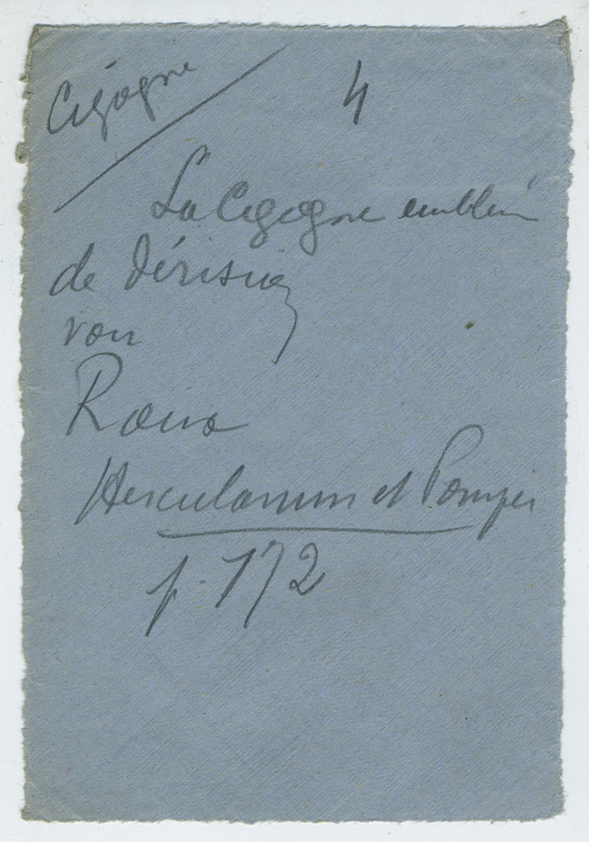 Cigogne
4
La Cigogne emblèm
de dérision
voir
Roux
Herculanum et Pompéi
p. 172